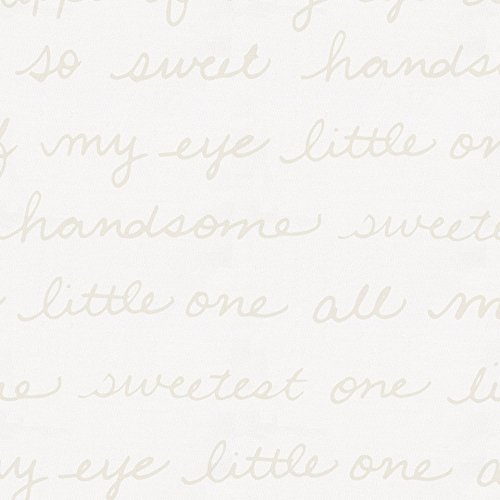 of my eye
so sweet hands
my eye little on
handsome sweetes
little one all m
sweetest one li
my eye little one a